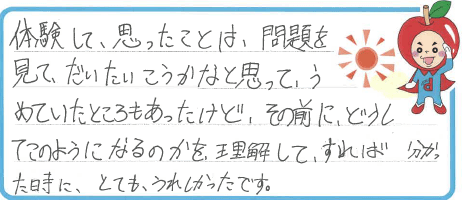 体験して、思ったことは、問題を
見て、だいたいこうかなと思って、う
めていたところもあったけど、その前に、どうし
てこのようになるのかを、理解して、すれば 分かっ
た時に、とても、うれしかったです。
d